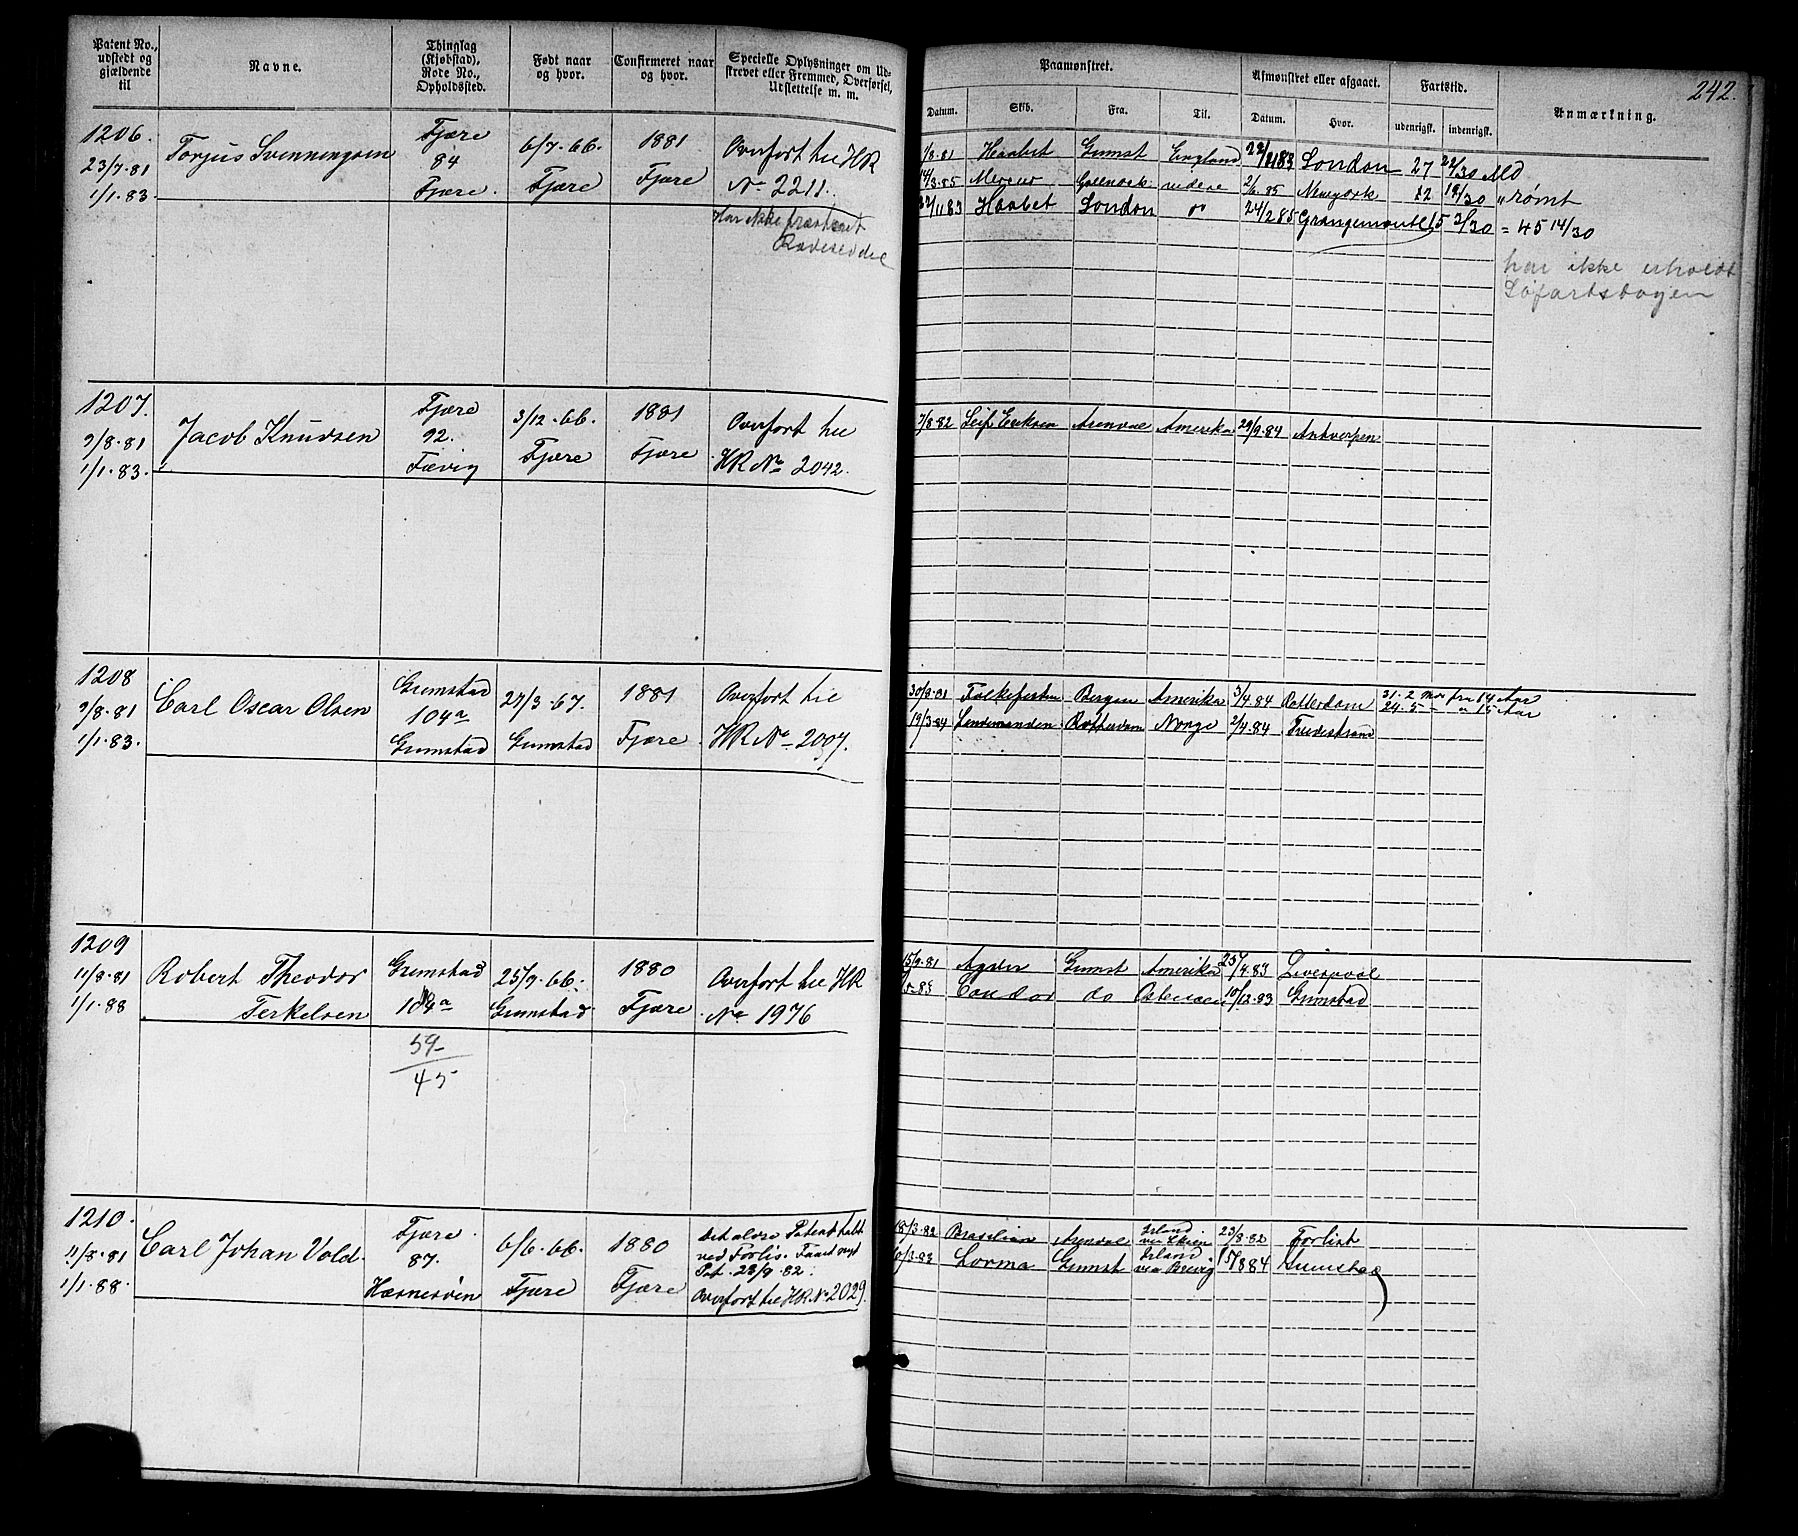 242.
Patent No., udstedt og gjældende til
Navne.
Thinglag (Kjøbstad), Rode No., Opholdssted.
Født naar og hvor.
Confirmeret naar og hvor.
Specielle Oplysninger om Udskrevet eller Fremmed, Overførsel, Udslettelse m. m.
Paamønstret.
Datum. Skib. Fra. Til.
Afmønstret eller afgaaet.
Datum. Hvor.
Fartstid.
udenrigsk. indenrigsk.
Anmærkning.
1206. Torjus Svenningsen Fjære 6/7.66. 1881 Overført til HR
23/7.81 84 Fjære Fjære No 2211.
1/1.83. Fjære.
Har ikke
Rodeseddel
/8.81 Haabet Grimst England 22/11 83 London 27 22/30 Md
14/3.85 Mercur Greenock videre 2/6.85 Newyork 12 18/30 " rømt
22/11 83 Haabet London do 24/2 85 Grangemouth 15 2/30 = 45 14/30
har ikke erholdt
Søfartsbogen
1207. Jacob Knudsen Fjære 3/12.66. 1881 Overført til
9/8.81 92. Fjære Fjære HR No 2042.
1/1.83. Fævig
7/8.82 Leif Erikson Arendal Amerika 29/9.84 Antverpen
1208 Carl Oscar Olsen Grimstad 27/3.67. 1881 Overført til
9/8.81 104a Grimstad Fjære HR No 2007.
1/1.83. Grimstad
30/8.81 Folkefesten Bergen Amerika 3/4.84 Rotterdam 31. 2 Mdr fra 14 Aar
19/3.84 Lindemanden Rotterdam Norge 2/4.84 24.5 - " 15 Aar
1209 Robert Theodor Grimstad 25/9.66. 1880 Overført til HR
11/8.81 Terkelsen 104a Grimstad Fjære No 1976
1/1.88
59
45
15/9.81 Agder Grimst Amerika 25/4.83 Liverpool
Condor do Ostersøen 10/12.83 Grimstad
1210. Carl Johan Vold. Fjære 6/6.66. 1880 Det aldre Patent tabt
11/8.81 87. Fjære Fjære ved Forlis. Faaet nyt
1/1.88. Hasneseven Pat. 28/9.82.
Overført til HR No 2029.
18/3.82 Brasilian Arendal Irland 23/8.82 Forlist
6/3.83 Lorma Grimst Irland via Brevig 15/8 84 Grimstad